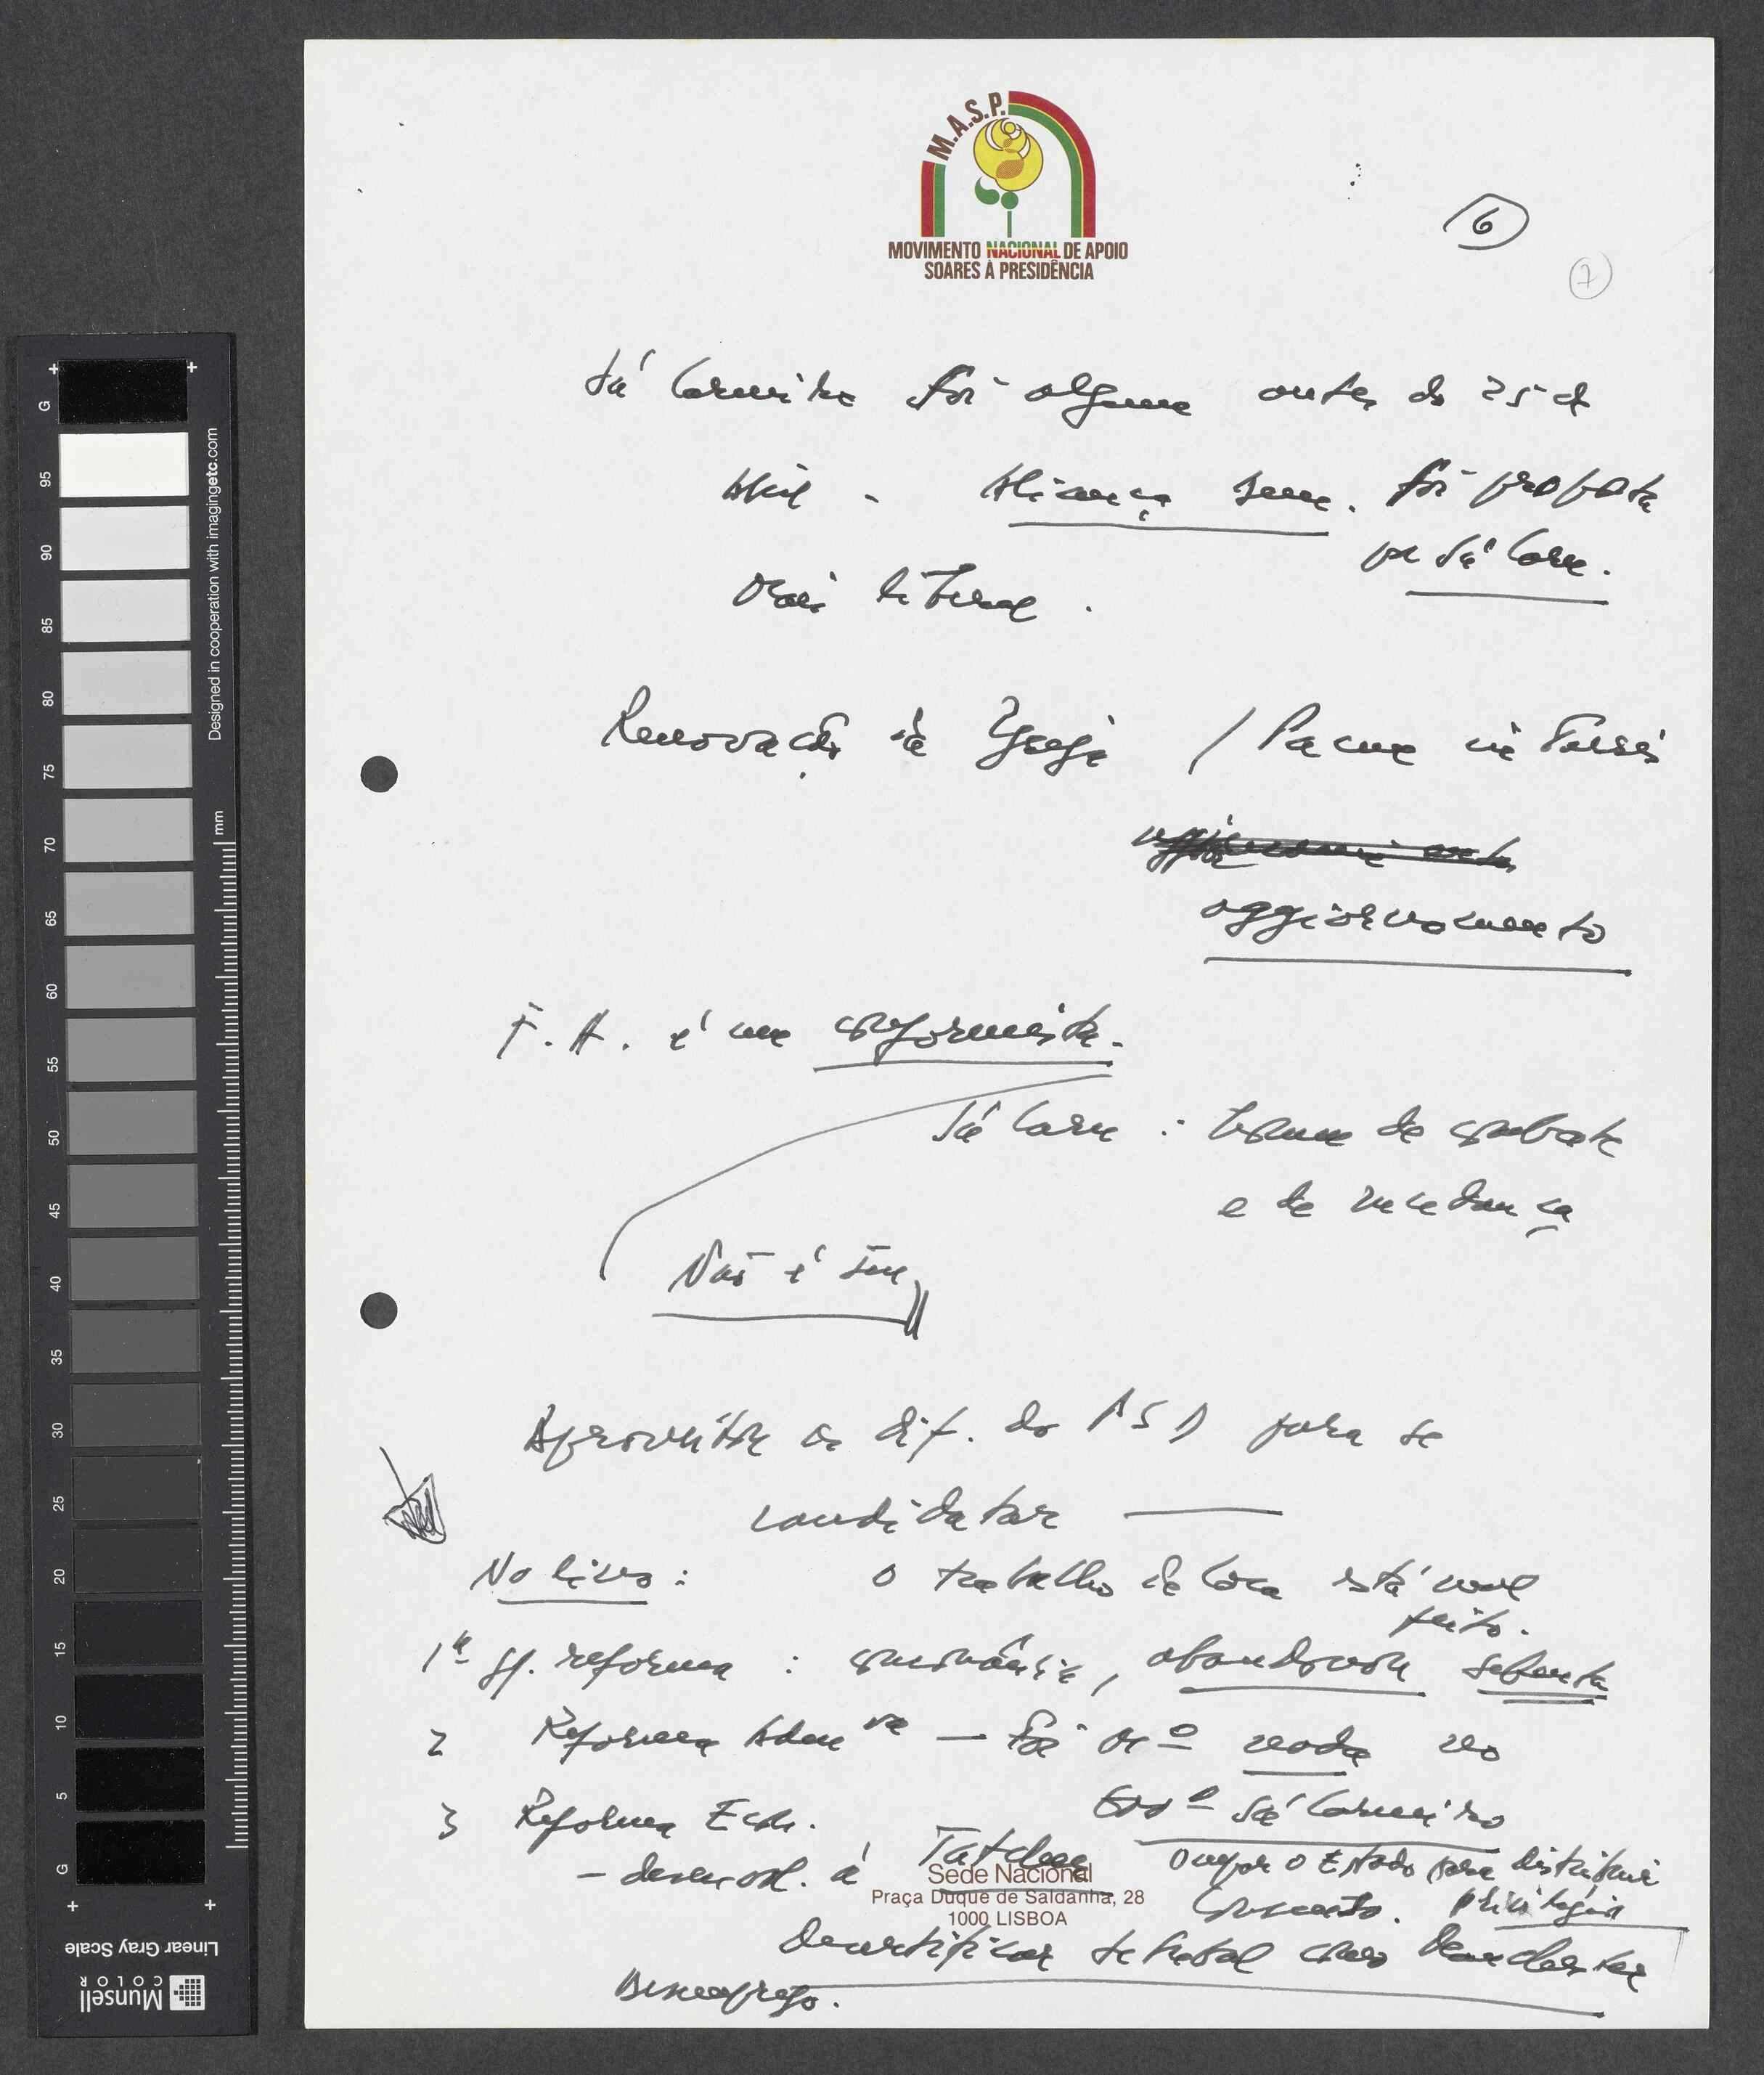 M.A.S.P.
MOVIMENTO NACIONAL DE APOIO
SOARES À PRESIDÊNCIA
6
7
Sá Carneiro foi alguma antes do 25 de
Abril - Aliança Dem. foi proposta
por Sá Carn.
Ala liberal.
Renovação da Igreja / Pacem in Terris
aggiornamento
F. A. é um conformista.
Sá Carn : homem de combate
e de mudança
Não é seu
Aproveitou as dif. do PSD para se
candidatar
No livro: O trabalho de casa está mal
feito.
1ª gr. reforma : abandonou
2 Reforma Admva — Foi nada no
3 Reforma Econ. Govº Sá Carneiro
- desenvol. à Tatcher Ocupar o Estado para distribuir
privilégios
Desertificar Setúbal como Manchester
Desemprego.
Sede Nacional
Praça Duque de Saldanha, 28
1000 LISBOA
G
95
90
85
80
75
70
65
60
55
50
45
40
35
30
25
20
15
10
5
G
mm
Designed in cooperation with imagingetc.com
Linear Gray Scale
Munsell
COLOR